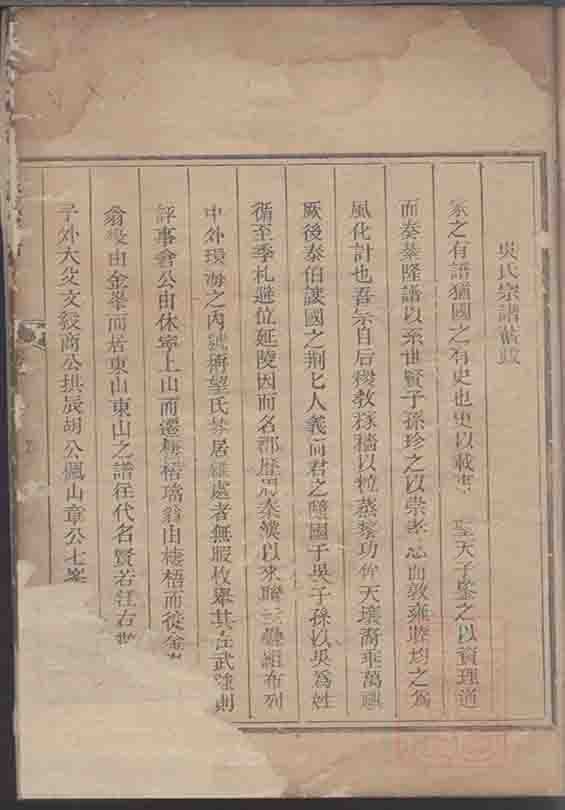 吳氏宗譜舊敘
家之有譜猶國之有史也史以載事 聖天子鑒之以資理道
而奏基隆譜以系世賢子孫珍之以崇孝思而敦雍睦均之爲
風化計也吾宗自后稷教稼穡以粒蒸黎功侔天壤裔垂萬禩
厥後泰伯讓國之荆七人義而君之肇國于吳子孫以吳爲姓
循至季札遜位延陵因而名郡歴周秦漢以來聯 簪組布列
中外環海之内號稱望氏禁居雜處者無暇枚舉其在武陵則
評事會公由休寧上山而遷棲梧瑞翁由棲梧而從金
翁受由金峯而居東山東山之譜往代名賢若汪右
子外大父文毅商公拱辰胡公楓山章公七峯